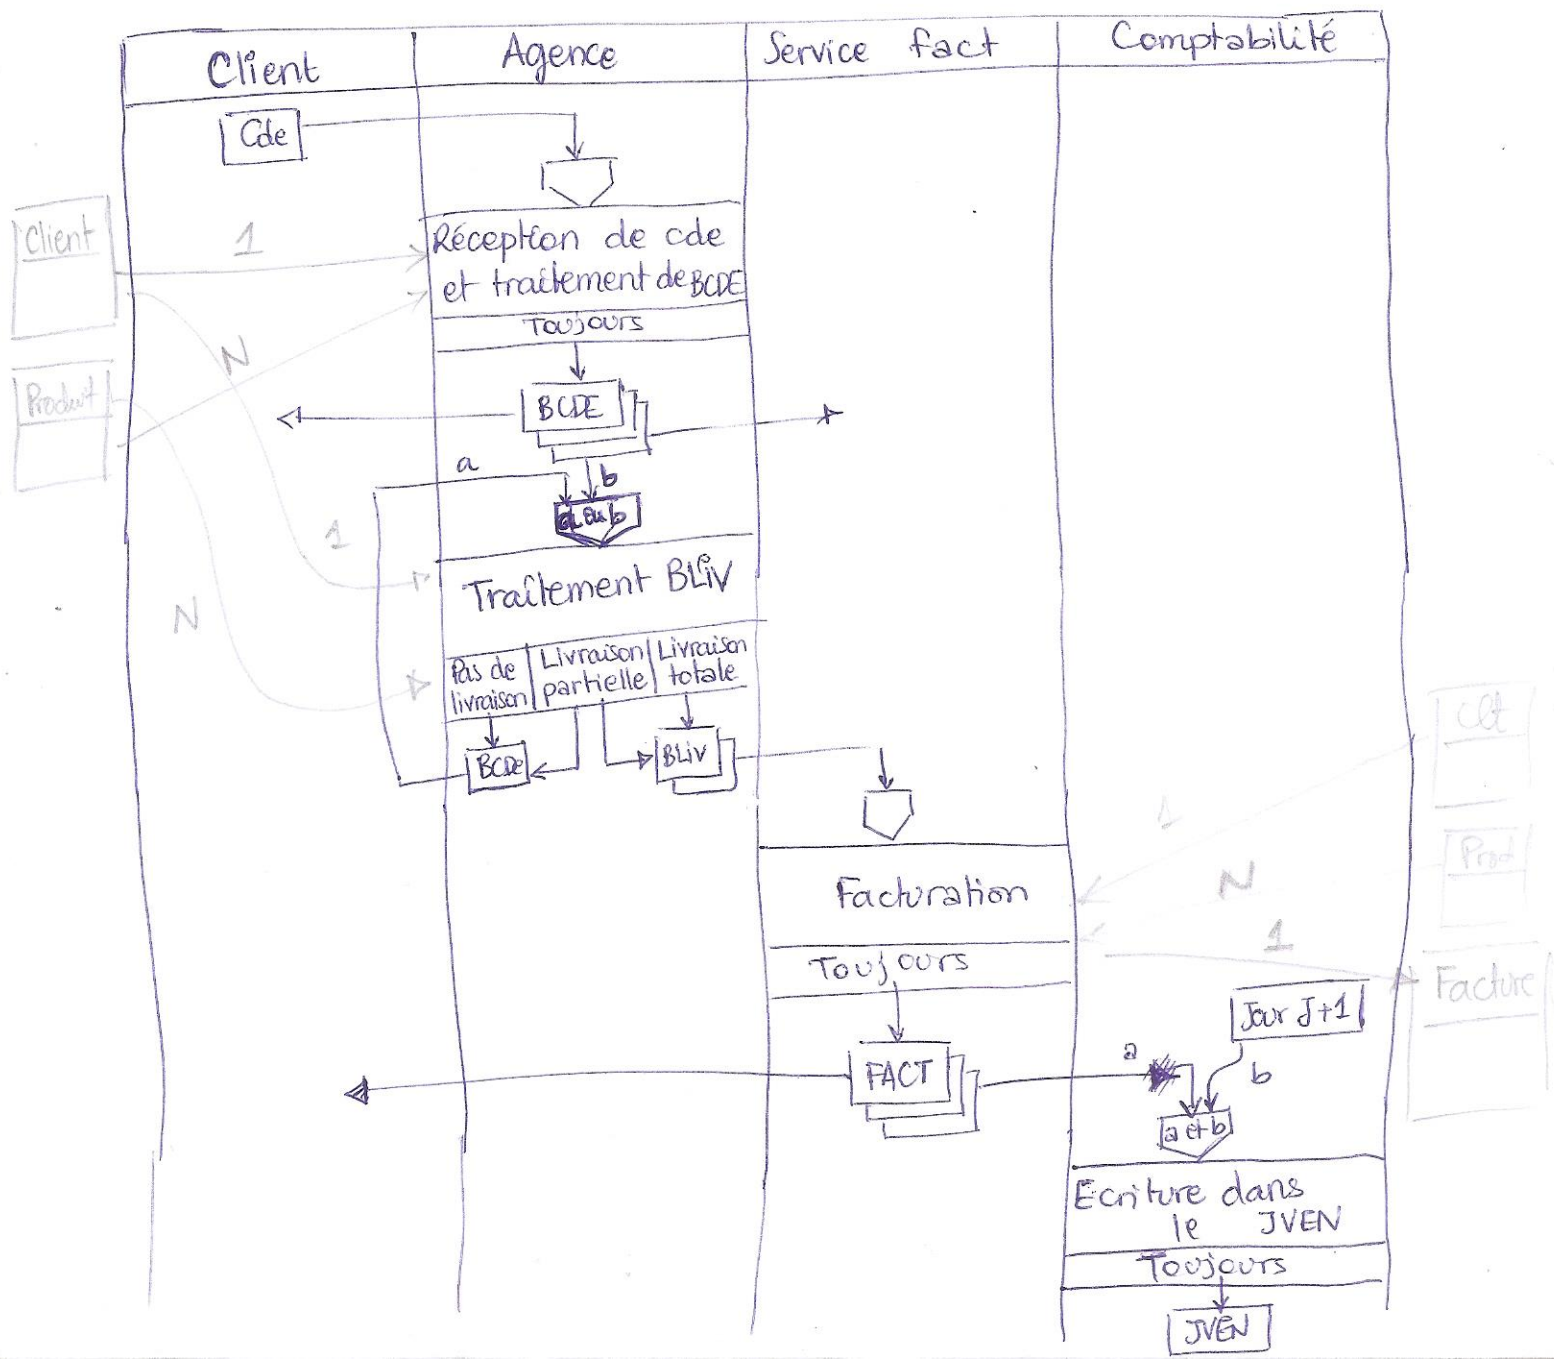 Client
Agence
Service fact
Comptabilité
Cde
Client
1
Réception de cde
et traitement de BCDE
Toujours
N
Produit
BCDE
a
b
a ou b
1
Traitement BLiV
N
Pas de
livraison
Livraison
partielle
Livraison
totale
BCDe
BLiV
Clt
1
Prod
N
Facturation
1
Toujours
Facture
Jour J+1
FACT
a
b
a et b
Ecriture dans
le JVEN
Toujours
JVEN